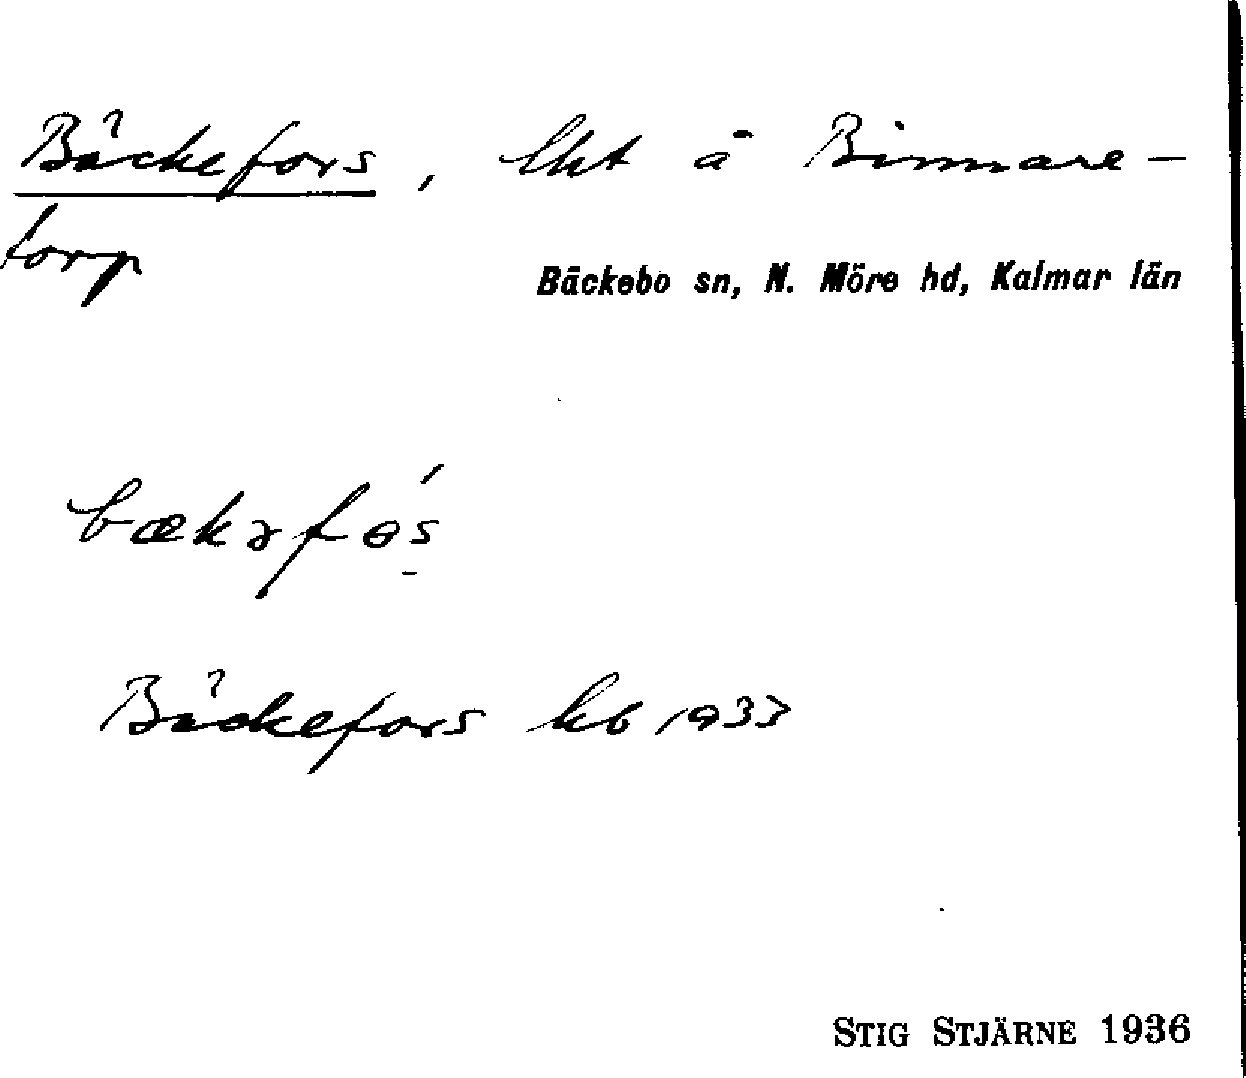 Bäckefors, lht å Binnare-
torp
Bäckebo sn, N. Möre hd, Kalmar län
bækəfɵ́s̠
Bäckefors kb 1933
STIG STJÄRNE 1936